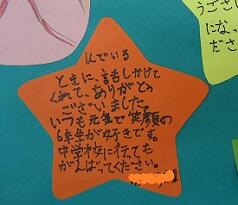 んでいる
ときに、話しかけて
くれて、ありがとう
ございました。
いつも元気で笑顔の
6年生が好きです。
中学校に行っても
がんばってください。
うござい
になっ
ださ